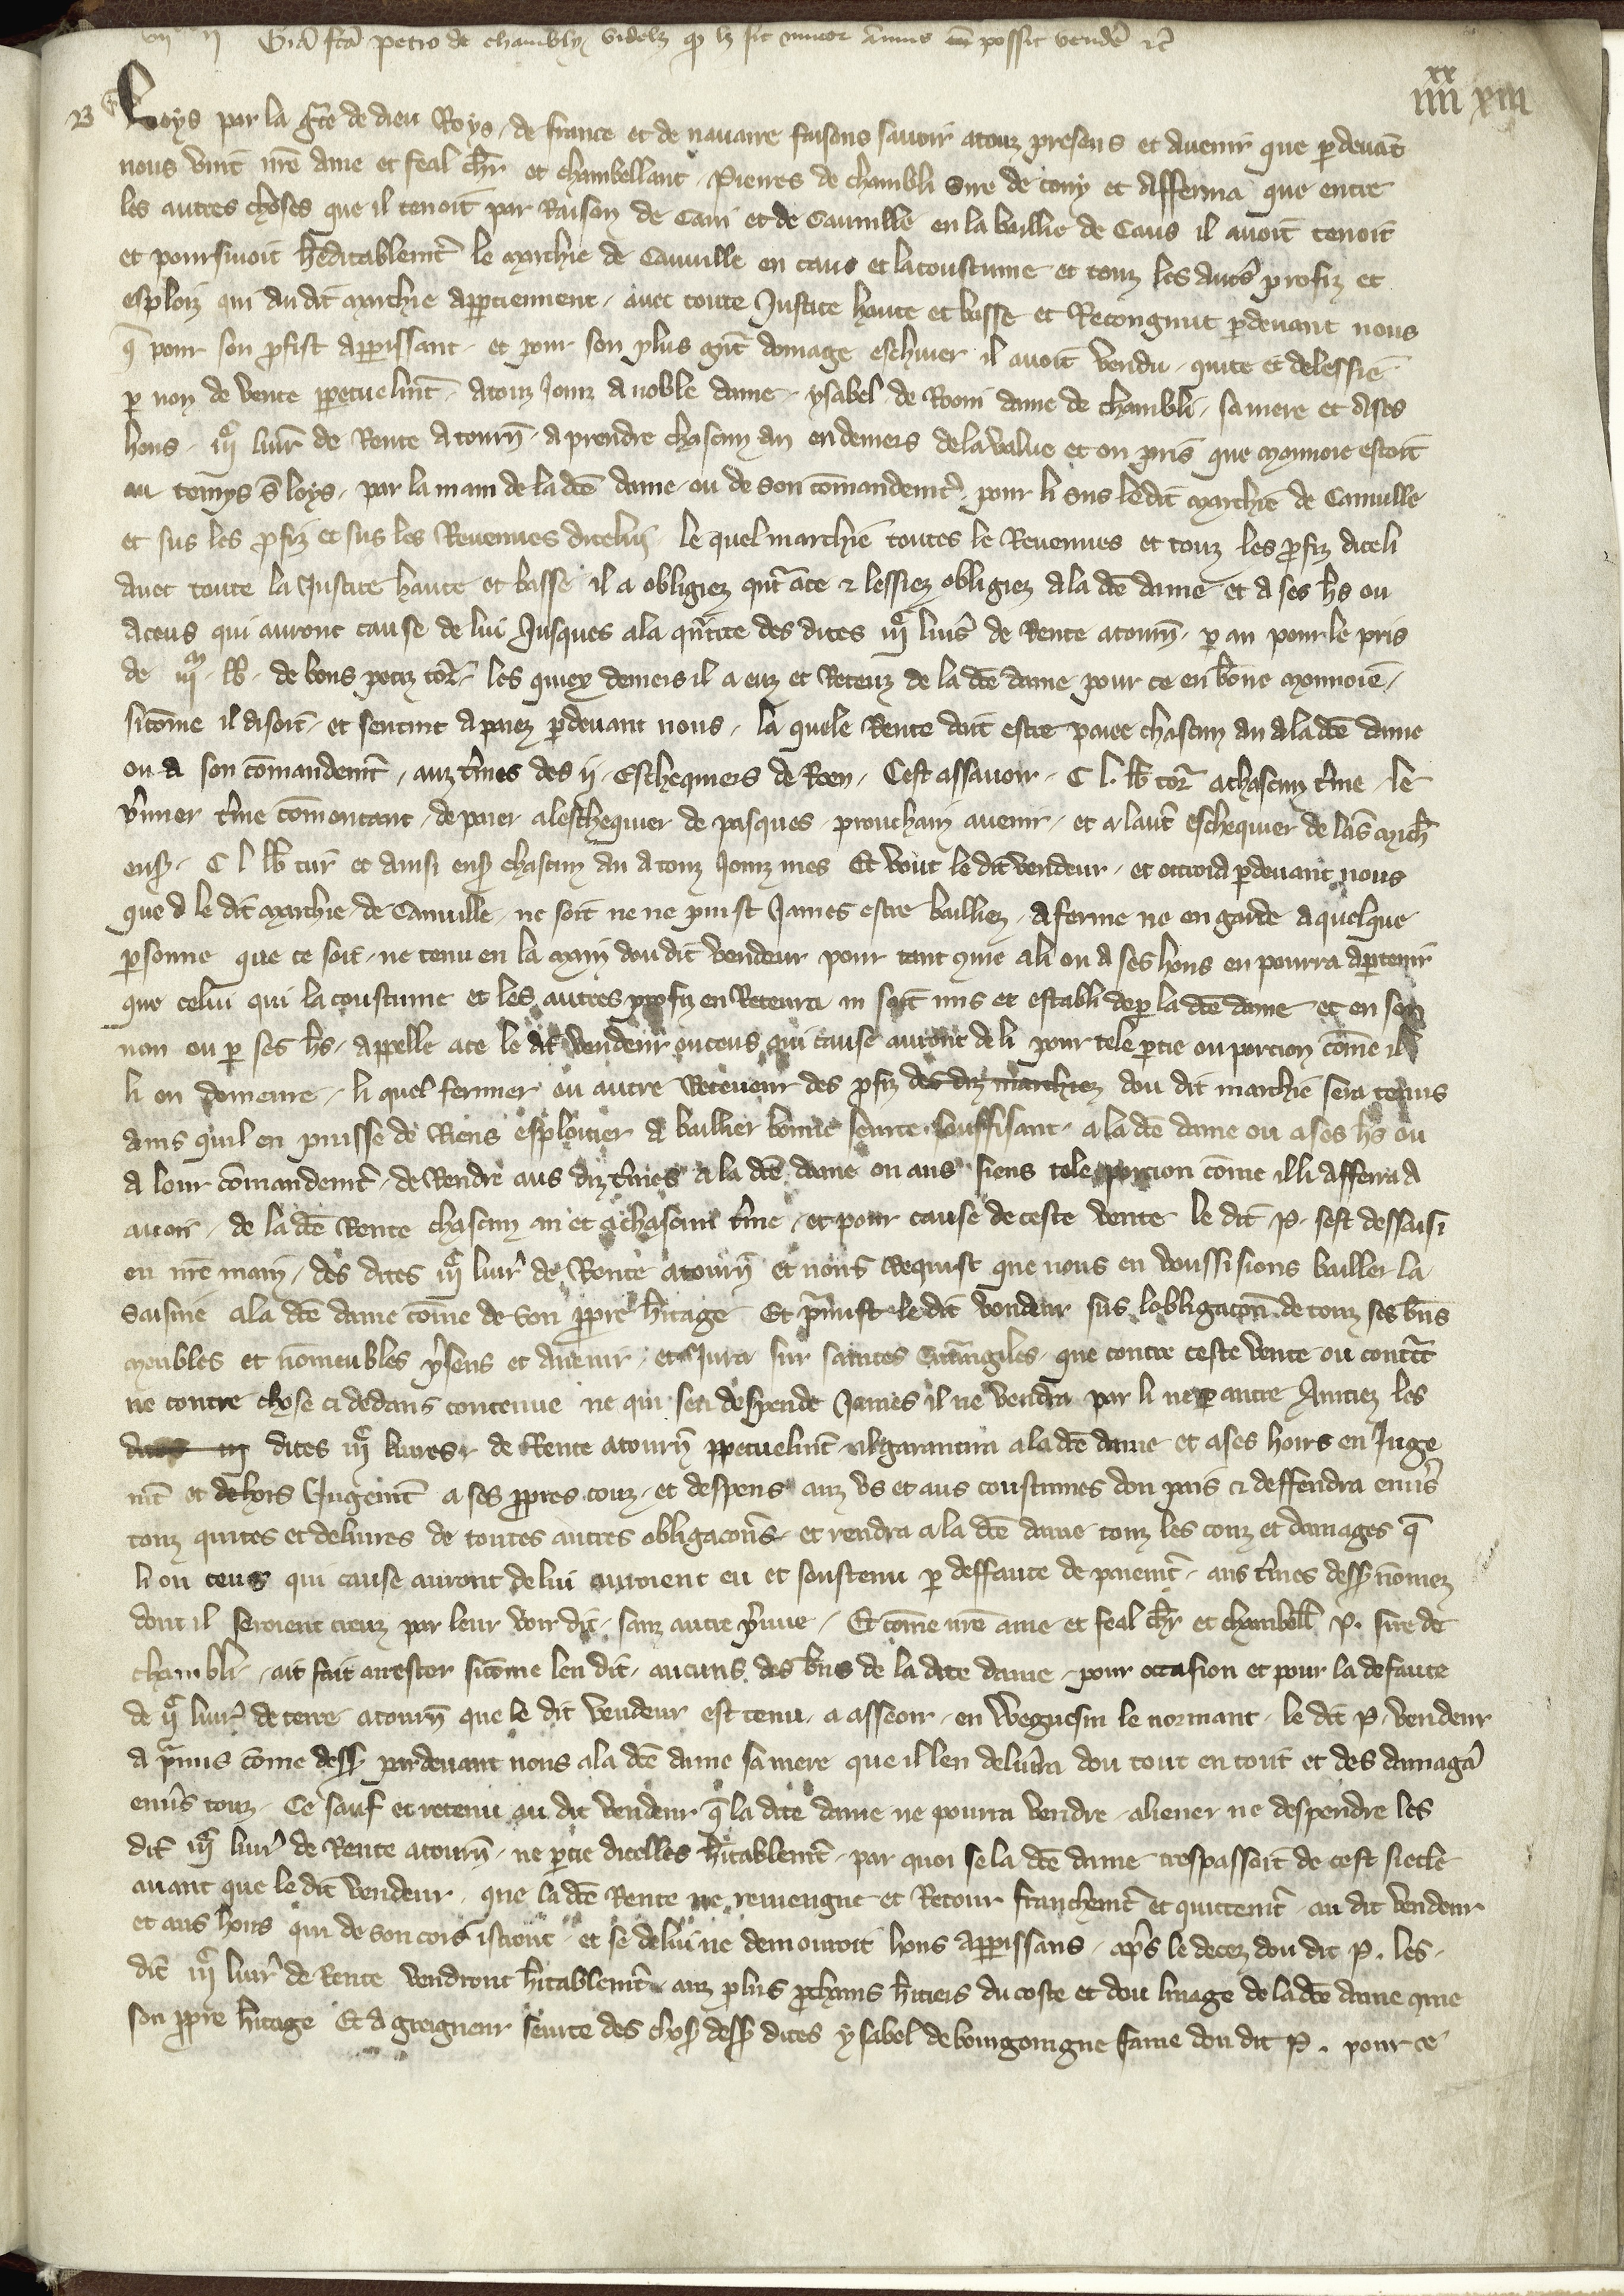 Gr̃a fc̃a Petro de Chambly videlz qđ lz sit minor annis possit vendẽ &c̃
iiii xx xiii
Loys par la gr̃ce de dieu Roys de france et de nauarre faisons sauoir a touz presens et auenir que ꝑ deuãt
nous vint nr̃e ame et feal ch̃r et chambellant Pierres de chambli sire de et afferma que entre
les autres choses que il tenoit par Raison de Cani et de Canuille en la baillie de Caus il auoit tenoit
et poursiuoit h̃editablem̃t le marchie de Canuille en caus et la coustume et touz les aut̃s profiz et
esploiz qui au dit marchie apꝑtiennent auec toute Justice haute et basse et Recongnut ꝑ deuant nous
q̃ pour son ꝓfist apꝑissant et pour son plus gñt domage eschiuer il auoit vendu quite et delessie
ꝑ non de vente ꝑpetuelm̃t a touz Jourz a noble dame ysabel de Roni dame de chambli sa mere et a ses
hoirs iijᶜ liur̃ de Rente a tourñ a prendre chascun an en deniers de la value et ou pris que monnoie estoit
au temps s̃ loys par la main de la dc̃e dame ou de son cõmandem̃t pour li sus le dit marchie de Canuille
et sus les ꝓfiz et sus les Reuenues diceluj le quel marchie toutes le Reuenues et touz les ꝓfiz diceli
auec toute la Justice haute et basse il a obligiez qñt a ce & lessiez obligiez a la dc̃e dame et a ses h̃s ou
a ceus qui auront cause de lui Jusques a la qñtite des dites iijᶜ liur̃s de Rente a tourñ ꝑ an pour le pris
de iijᵐ lb̃ de bons petiz tor̃ les quiex deniers il a euz et Receuz de la dc̃e dame pour ce en bõne monnoie
si cõme il disoit et sen tint a paiez ꝑ deuant nous la quele Rente doit estre paiee chascun an a la dc̃e dame
ou a son cõmandem̃t auz t̃mes des ij Eschequiers de Roen Cest assauoir C l lb̃ tor̃ a chascun t̃me le
p̃mier t̃me cõmencant de paier a leschequier de pasques prouchain auenir et a laut̃ eschequier de la s̃ mich̃
enss̃ C l lb̃ tur̃ et ainsi enss̃ chascun an a touz Jourz mes Et vout le dit vendeur et ottroia ꝑ deuant nous
que d le dit marchie de Canuille ne soit ne ne puist James estre bailliez a ferme ne en garde a quelque
ꝑsonne que ce soit ne tenu en la main dou dit vendeur pour tant q̃ a li ou a ses hoirs en pourra aꝑtenir
que celui qui la coustume et les autres profiz en Receura ni soit mis et establi de ꝑ la dc̃e dame et en son
non ou ꝑ ses h̃s appelle a ce le dit vendeur ou ceus qui cause auront de li pour tele ꝑtie ou porcion cõme il
li en demeure li quel fermier ou autre Receueur des ꝓfiz des diz marchiez dou dit marchie sera tenus
ains quil en puisse de Riens esploitier a baillier bonne seurte souffisant a la dc̃e dame ou a ses h̃s ou
a lour cõmandem̃t de Rendre aus diz t̃mes a la dc̃e dame ou aus siens tele porcion cõme il li afferra a
auoir de la dc̃e Rente chascun an et a chascun t̃me et pour cause de ceste vente le dit P. sest dessaisi
en nr̃e main des dites iijᶜ liur̃ de Rente a tourñ et nous Requist que nous en voussissions bailler la
saisine a la dc̃e dame cõme de son ꝓpre h̃itage Et ꝓmist le dit vendeur sus lobligacõn de touz ses b̃ns
moubles et nõmeubles p̃sens et auenir et Jura sur saintes euuãngiles que contre ceste vente ou cont̃ct
ne contre chose ci dedans contenue ne qui sen despende James il ne vendra par li ne ꝑ autre Aincies les
dites iij dites iijᶜ liures de Rente a tourñ ꝑpetuelm̃t il garantira a la dc̃e dame et a ses hoirs en Juge
m̃t et dehors Jugem̃t a ses ꝓpres couz et despens auz vs et aus coustumes dou pais & deffendra enu̾s
touz quites et deliures de toutes autres obligacõns et rendra a la dc̃e dame touz les couz et damages q̃
li ou ceus qui cause auront de lui auroient eu et soustenu ꝑ deffaute de paiem̃t aus t̃mes dess̃ nõmez
dont il seroient creuz par leur voir dit sanz autre p̃uue Et cõme nr̃e ame et feal ch̃r et chambell̃ P. sire de
chambli ait fait arrester si cõme len dit aucuns des b̃ns de la dite dame pour occasion et pour la defaute
de ijᶜ liur̃ de terre a tourñ que le dit vendeur est tenu a asseoir en Weguesin le normant le dit P. vendeur
a ꝓmis cõme dess̃ par deuant nous a la dc̃e dame sa mere que il len deliurra dou tout en tout et des damaga͂
enu̾s touz Ce sauf et retenu au dit vendeur q̃ la dite dame ne pourra vendre aliener ne despendre les
dit̃ iijᶜ liur̃ de Rente a tourñ ne ꝑtie dicelles h̃itablem̃t par quoi se la dc̃e dame trespassoit de cest siecle
auant que le dit vendeur que la dc̃e Rente ne reuiengne et Retour franchem̃t et quittem̃t au dit vendeur
et aus hoirs qui de son cors istront et se de lui ne demouroit hoirs apꝑissans apr̃s le decez dou dit P. les
dit̃ iijᶜ liur̃ de Rente vendront h̃itablem̃t auz plus ꝓchains h̃itiers du coste et dou linage de la dc̃e dame q̃me
son ꝓpre h̃itage Et a greigneur seurte des chos̃ dess̃ dites ysabel de bourgoingne fame dou dit P. pour ce